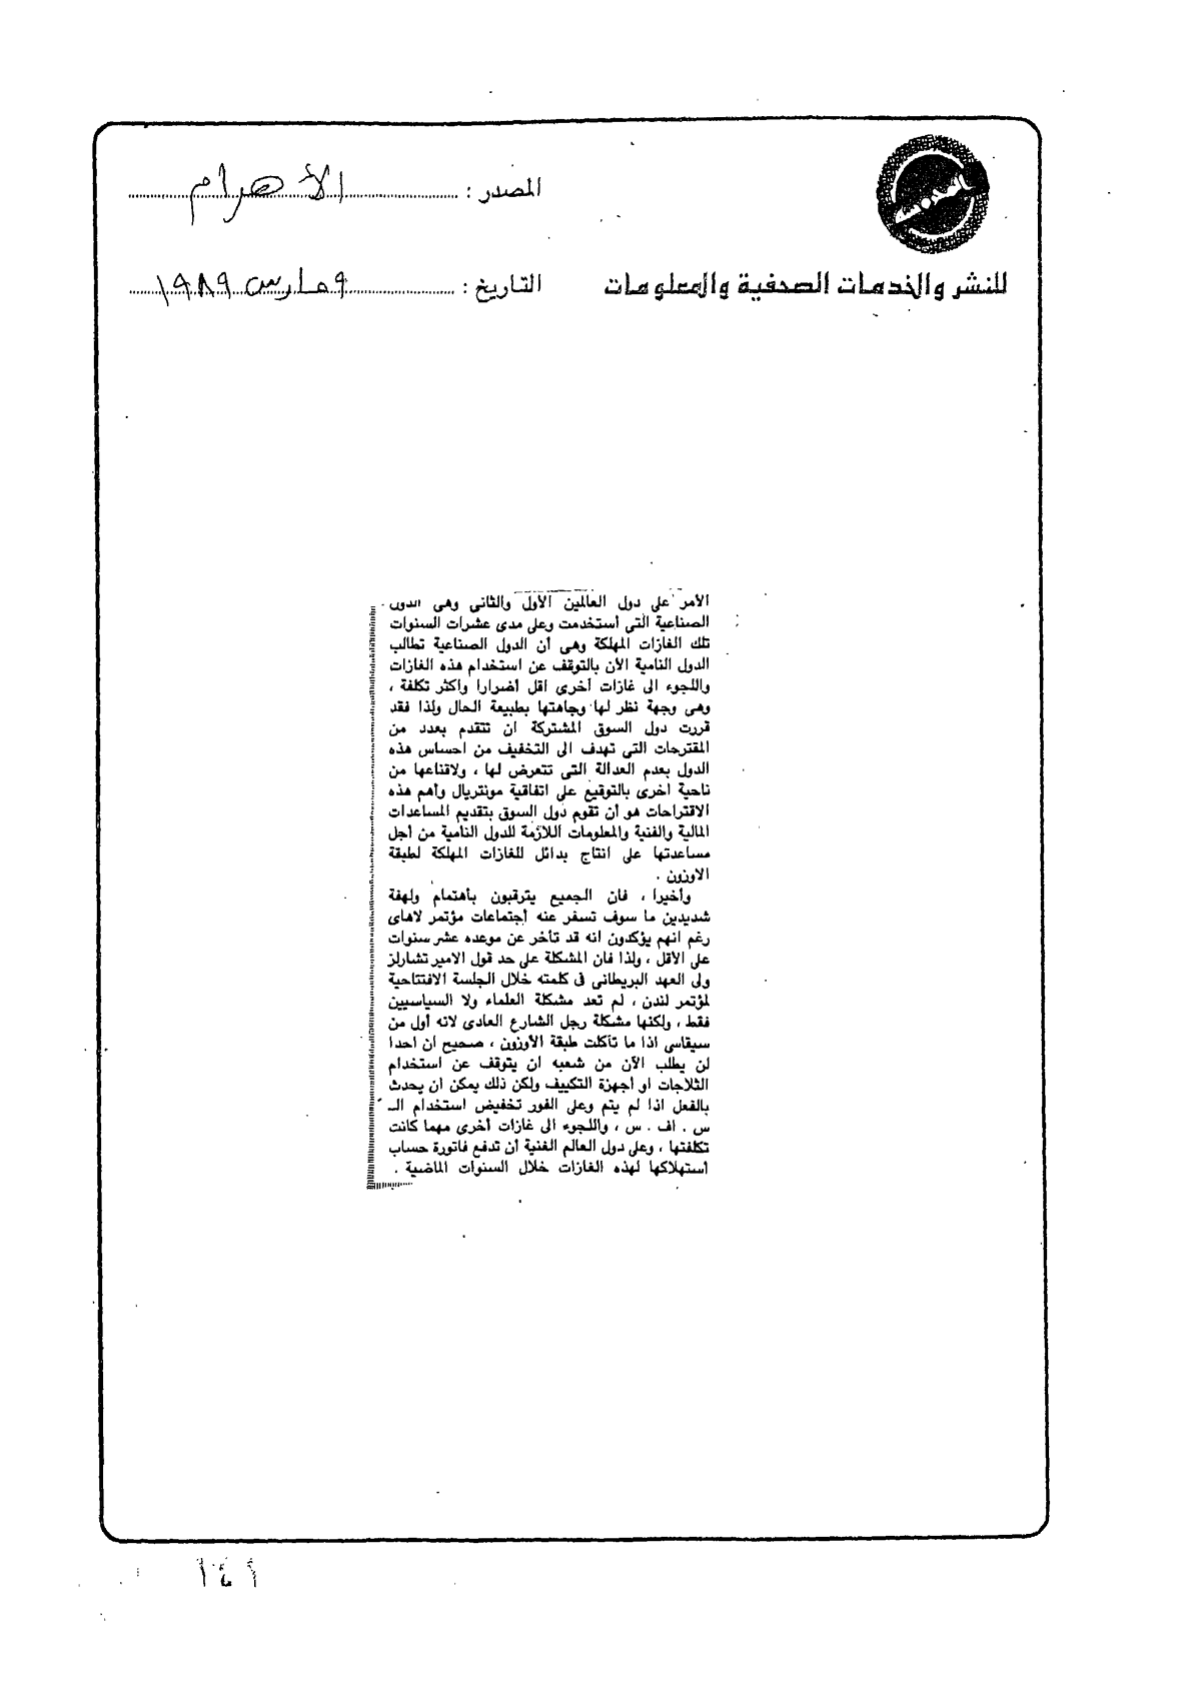 المصدر : الأهرام
للنشر والخدمات الصحفية والمعلومات
التاريخ : ٩ مارس ١٩٨٩
الأمر على دول العالمين الأول والثانى وهى الدول
الصناعية التى أستخدمت وعلى مدى عشرات السنوات
تلك الغازات المهلكة وهى أن الدول الصناعية تطالب
الدول النامية الآن بالتوقف عن استخدام هذه الغازات
واللجوء الى غازات أخرى اقل أضرارا واكثر تكلفة ،
وهى وجهة نظر لها وجاهتها بطبيعة الحال ولذا فقد
قررت دول السوق المشتركة ان تتقدم بعدد من
المقترحات التى تهدف الى التخفيف من احساس هذه
الدول بعدم العدالة التى تتعرض لها ، ولاقناعها من
ناحية أخرى بالتوقيع على اتفاقية مونتريال وأهم هذه
الاقتراحات هو أن تقوم دول السوق بتقديم المساعدات
المالية والفنية والمعلومات اللازمة للدول النامية من أجل
مساعدتها على انتاج بدائل للغازات المهلكة لطبقة
الاوزون .
وأخيرا ، فان الجميع يترقبون بأهتمام ولهفة
شديدين ما سوف تسفر عنه أجتماعات مؤتمر لاهاى
رغم انهم يؤكدون انه قد تأخر عن موعده عشر سنوات
على الأقل ، ولذا فان المشكلة على حد قول الامير تشارلز
ولى العهد البريطانى فى كلمته خلال الجلسة الافتتاحية
لمؤتمر لندن ، لم تعد مشكلة العلماء ولا السياسيين
فقط ، ولكنها مشكلة رجل الشارع العادى لانه أول من
سيقاسى اذا ما تأكلت طبقة الأوزون ، صحيح ان احدا
لن يطلب الآن من شعبه ان يتوقف عن استخدام
الثلاجات او أجهزة التكييف ولكن ذلك يمكن ان يحدث
بالفعل اذا لم يتم وعلى الفور تخفيض استخدام الـ
س . اف . س ، واللجوء الى غازات أخرى مهما كانت
تكلفتها ، وعلى دول العالم الغنية أن تدفع فاتورة حساب
أستهلاكها لهذه الغازات خلال السنوات الماضية .
١٤١